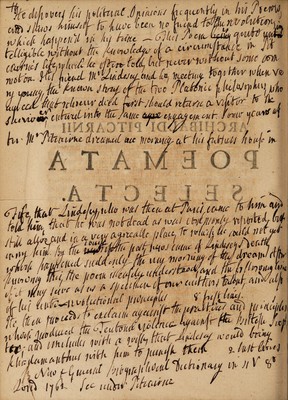 He discovers his political Opinions frequently in his Poems
and shews himself to have been no friend to the revolution
which happened in his time — This Poem being quite
without the knowledge of a circumstance in Pit
cairne's life which he often told but never without some
emotion. His friend Mr Lindsey and he meeting together when ve
ry young, the known story of the two Platonic philosophers who
that whoever died first should return a visit to the
survivor entered into the same engagement. Four years af
ter Mr Pitcairne dreamed one morning at his fathers house in
ARCHIBALDI PITCARNII
POEMATA
SELECTA.
Fife, that Lindsey who was then at Paris came to him and
told him that he was not dead as was commonly reported, but
still alive and in a very agreeable place, to which he could not yet
carry him. By the course of the post news came of Lindsey's Death
which happened suddenly the very morning of the dream. After
knowing this the poem is easily understood, and the
may serve as a specimen of our authors talent, and also
of his revolutional principles
He then proceeds to exclaim against the practices and principles
which produced the violence against the Scottish
and concludes with a that Lindsey would bring
Rhadamanthus with him to punish them 2 last lines
New & General Biographical Dictionary in 11 V. 8º
Lond 1762 See under Pitcairne